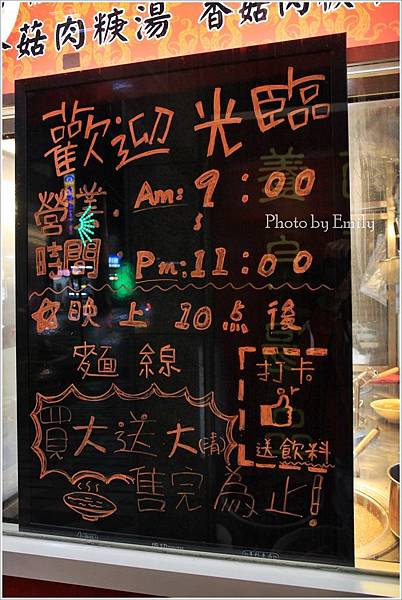 香菇肉羹湯 香菇肉
歡迎光臨
營業時間
Am: 9:00
Pm: 11:00
Photo by Emily
☆晚上 10 点後
麵線
買大送大(清)
售完為止!
打卡
送飲料